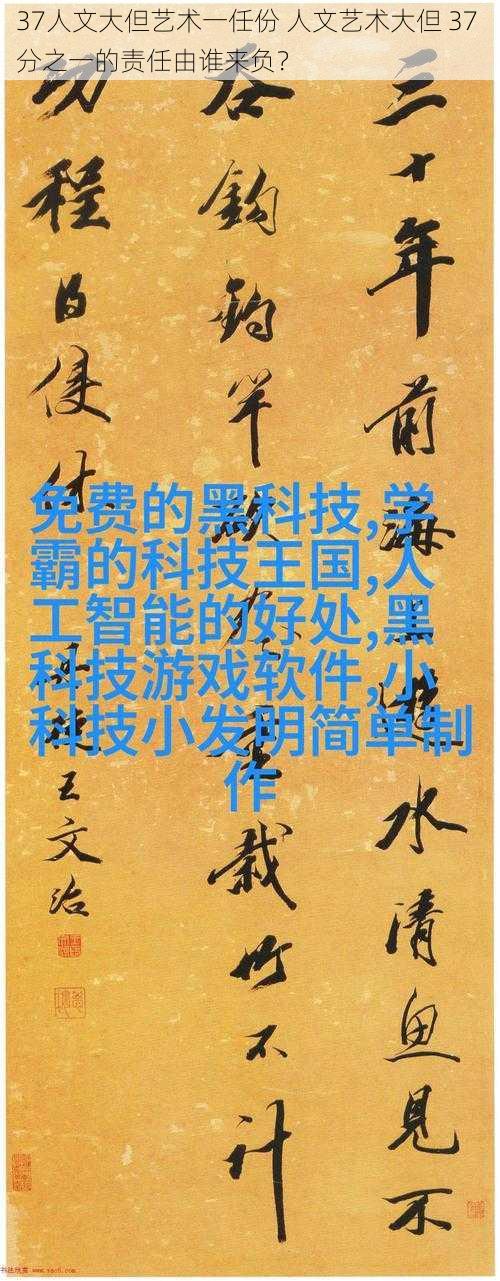 37人文大但艺术一任份 人文艺术大但 37
分之一的责任由谁来负？
免费的黑科技,学
霸的科技王国,人
工智能的好处,黑
科技游戏软件,小
科技小发明简单制
作
三十年前海遊水清魚見不
吞鈎釣竿重栽竹不計
功程得便休
王文治
书法欣赏 www.yac8.com